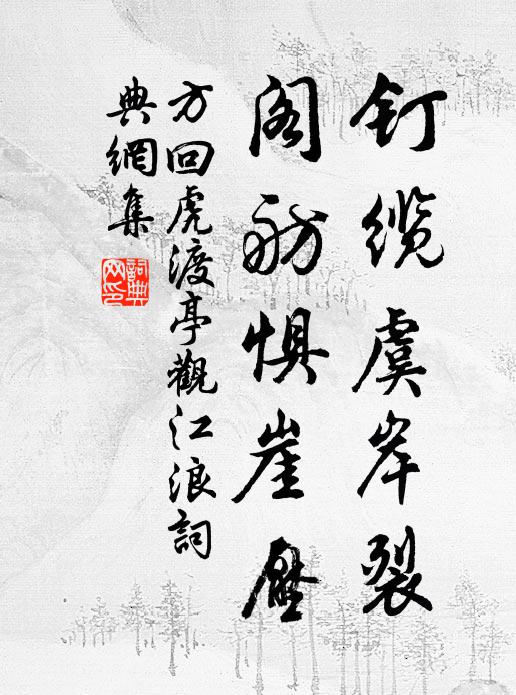 钉缆虞岸裂
阁舫惧崖压
方回虎渡亭觀江浪詞
典網集
詞典网印